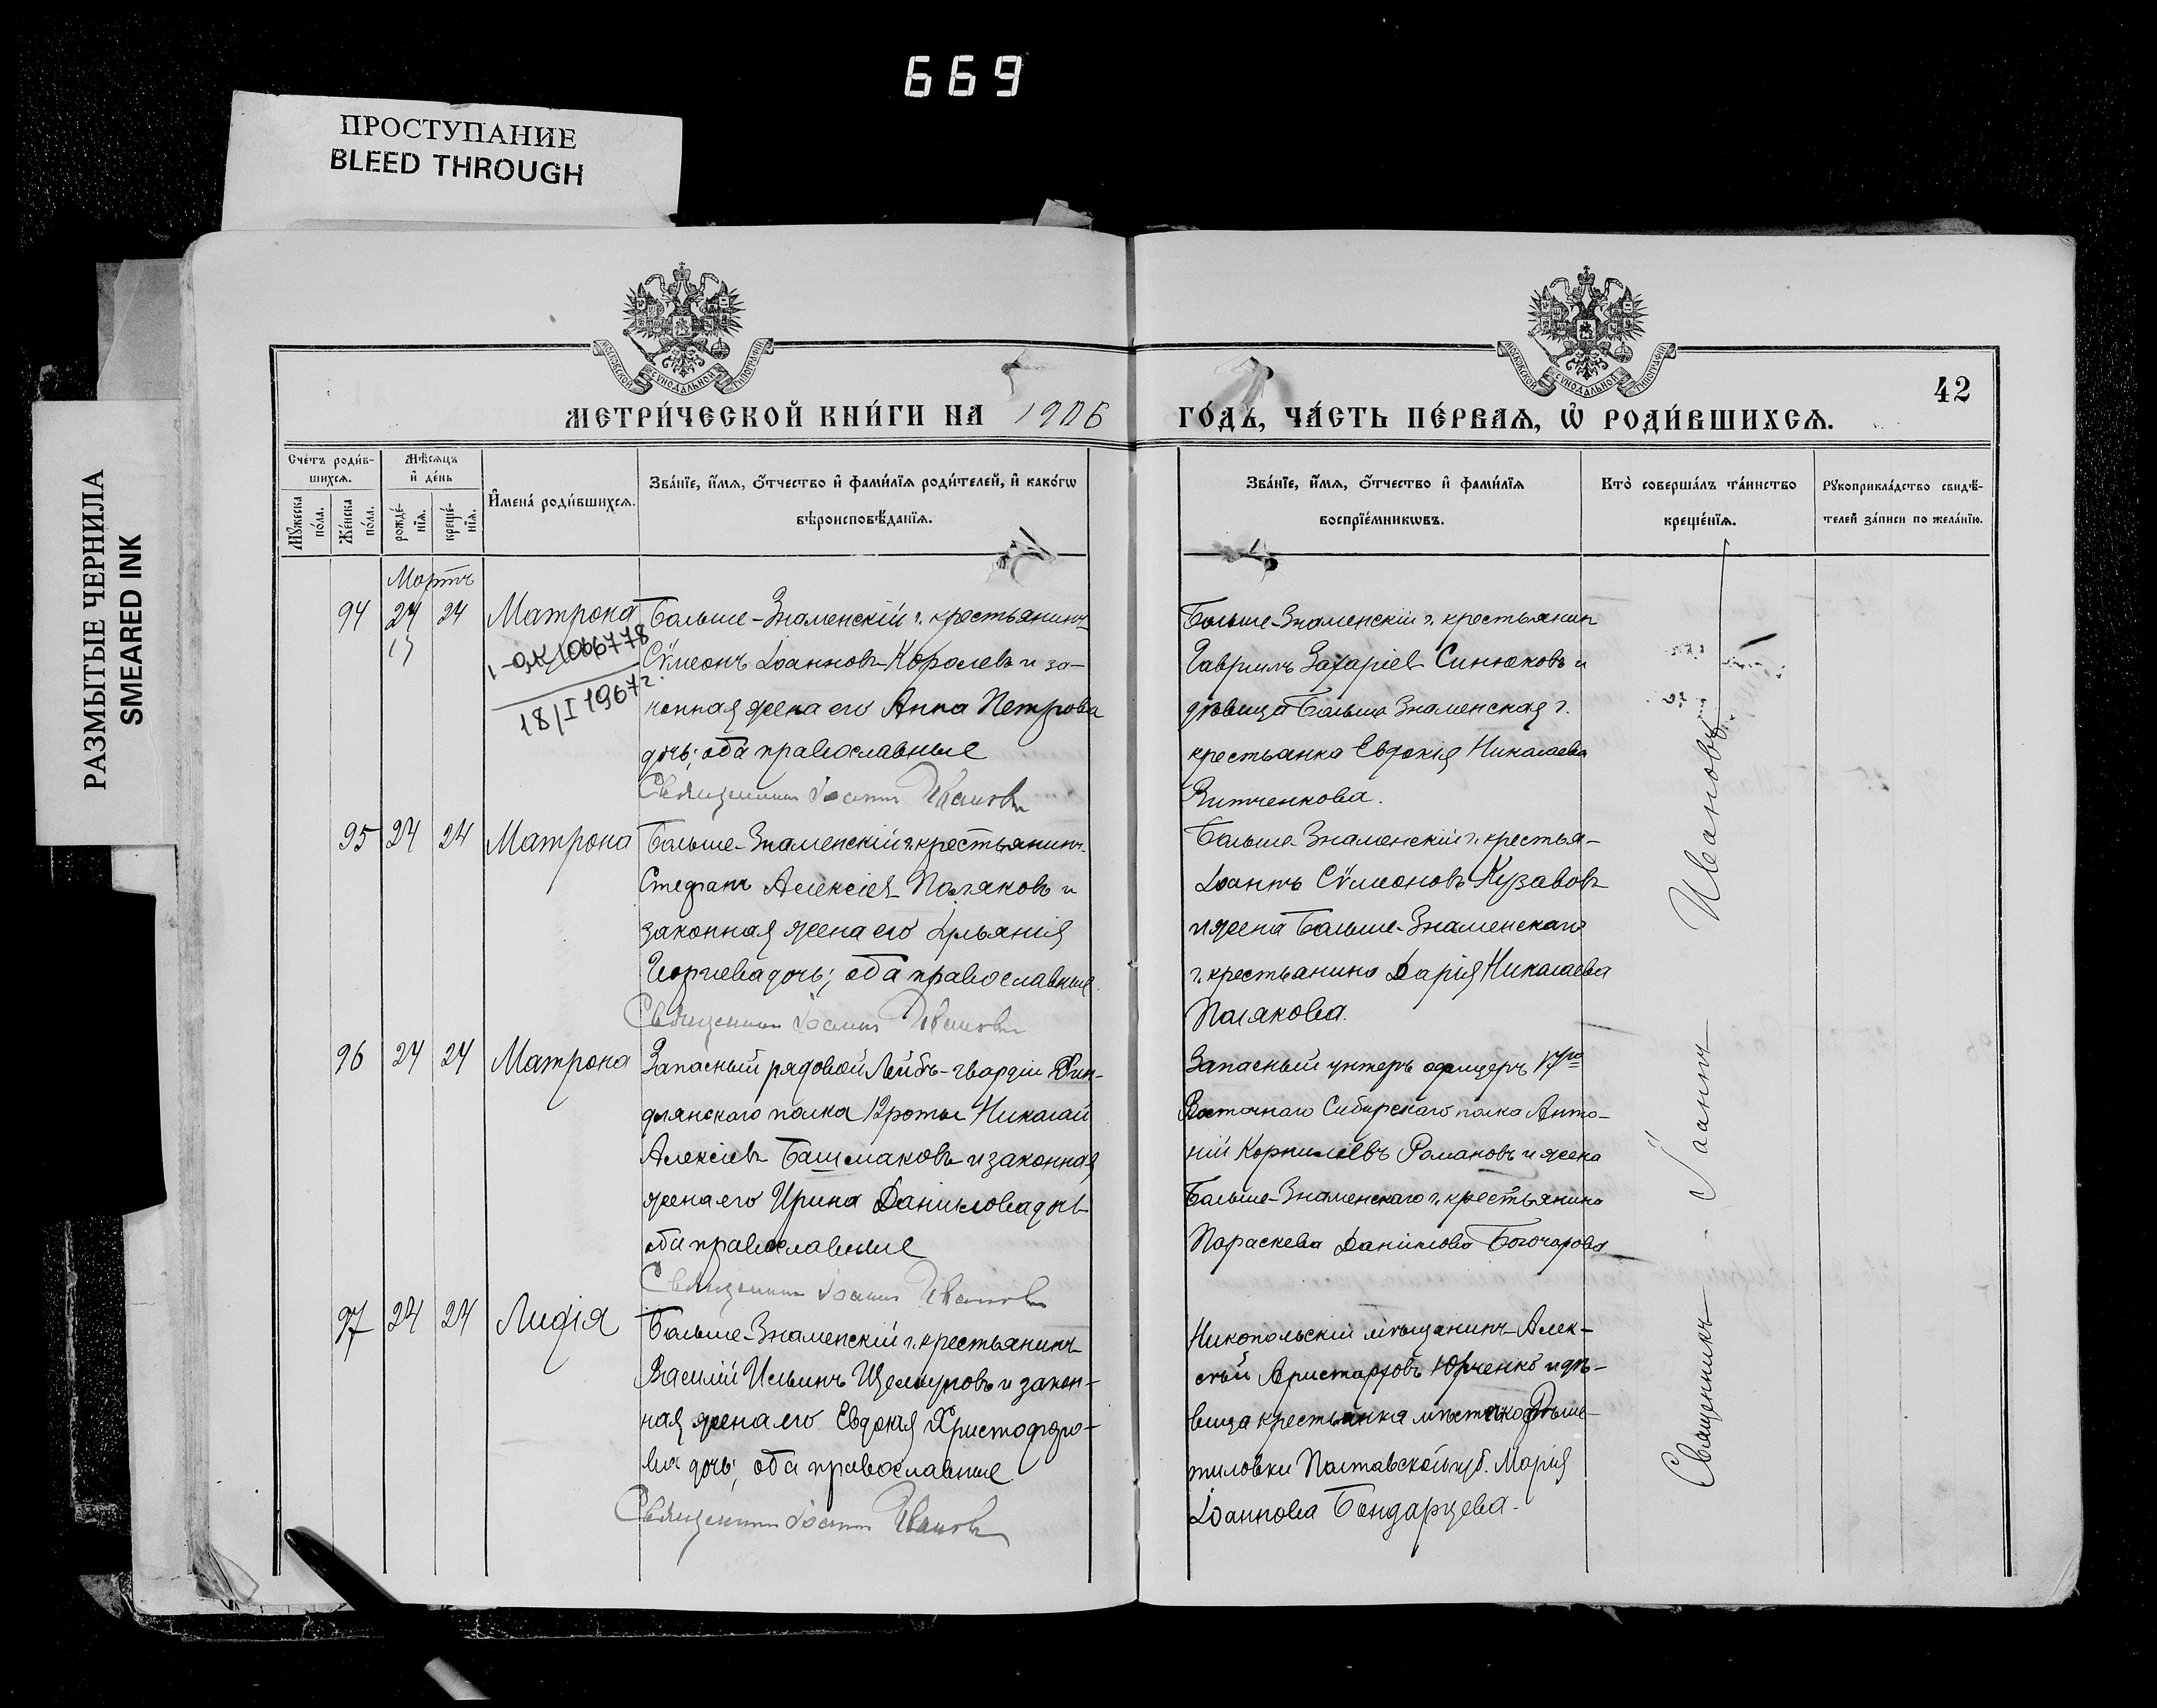 669
ПРОСТУПАНИЕ
BLEED THROUGH
РАЗМЫТЫЕ ЧЕРНИЛА
SMEARED INK
МОСКОВСКОЙ СѴНОДАЛЬНОЙ ТИПОГРАФІИ
МОСКОВСКОЙ СѴНОДАЛЬНОЙ ТИПОГРАФІИ
42
МЕТРИ́ЧЕСКОЙ КНИ́ГИ НА 1906 ГО́ДЪ, ЧА́СТЬ ПЕ́РВАѦ, Ѡ РОДИ́ВШИХСѦ.
Сче́тъ роди́в-
шихсѧ.
Мꙋ́жеска по́ла.
Же́нска по́ла.
Мѣ́сѧцъ и де́нь
рожде́-нїѧ.
креще́-нїѧ.
Имена̀ роди́вшихсѧ.
Зва́нїе, и́мѧ, о́тчество и фами́лїѧ роди́телей, и како́гѡ
вѣроисповѣ́данїѧ.
Зва́нїе, и́мѧ, о́тчество и фами́лїѧ
воспрїе́мникѡвъ.
Кто̀ соверша́лъ та́инство
креще́нїѧ.
Рꙋкоприкла́дство свидѣ́-
телей за́писи по жела́нїю.
Мартъ
94 24 24 Матрона
13
18/I 1967г.
Больше-Знаменскій г. крестьянинъ
Сѵмеонъ Іоанновъ Королевъ и за-
конная жена его Анна Петрова
дочь; оба православные
Священникъ Іоаннъ Ивановъ
Больше-Знаменскій г. крестьянин
Гавриилъ Захаріевъ Синюковъ и
дѣвица Больше Знаменская г.
крестьянка Евдокія Николаева
Витченкова.
95 24 24 Матрона
Больше-Знаменскій г. крестьянинъ
Стефанъ Алексіевъ Поляковъ и
законная жена его Іульянія
Георгіева дочь; оба православные.
Священникъ Іоаннъ Ивановъ
Больше-Знаменскій г. крестья-
Іоаннъ Сѵмеоновъ Кузавовъ
и жена Больше-Знаменскаго
г. крестьянина Дарія Николаева
Полякова.
96 24 24 Матрона
Запасный рядовой Лейбъ-гвардіи Фин-
ляндскаго полка 12 роты Николай
Алексіевъ Башмаковъ и законная
жена его Ирина Даніилова дочь
оба православные
Священникъ Іоаннъ Ивановъ
Запасный унтеръ офицеръ 17го
Восточнаго Сибирскаго полка Анто-
ній Корниліевъ Романовъ и жена
Больше-Знаменскаго г. крестьянина
Параскева Даніилова Богочарова
97 24 24 Лидія
Больше-Знаменскій г. крестьянинъ
Василій Ильинъ Щелкуновъ и закон-
ная жена его Евдокія Христофоро-
ва дочь; оба православные
Священникъ Іоаннъ Ивановъ
Никопольскій мѣщанинъ Алек-
сѣй Аристарховъ Юрченко и дѣ-
вица крестьянка мѣстечко Рѣше-
тиловки Полтавской губ. Марія
Іоаннова Бондарцева.
Священникъ Іоаннъ Ивановъ